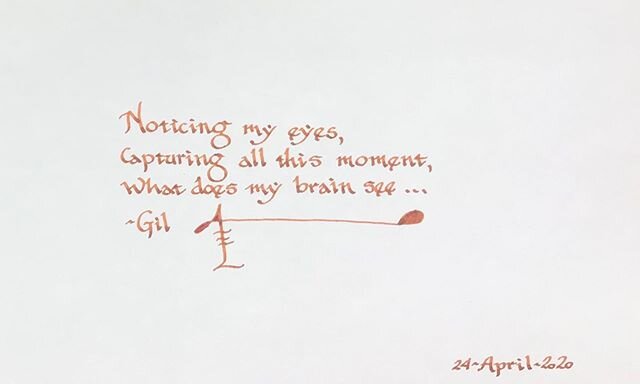 Noticing my eyes,
Capturing all this moment,
What does my brain see ...
~Gil
24~April~2020